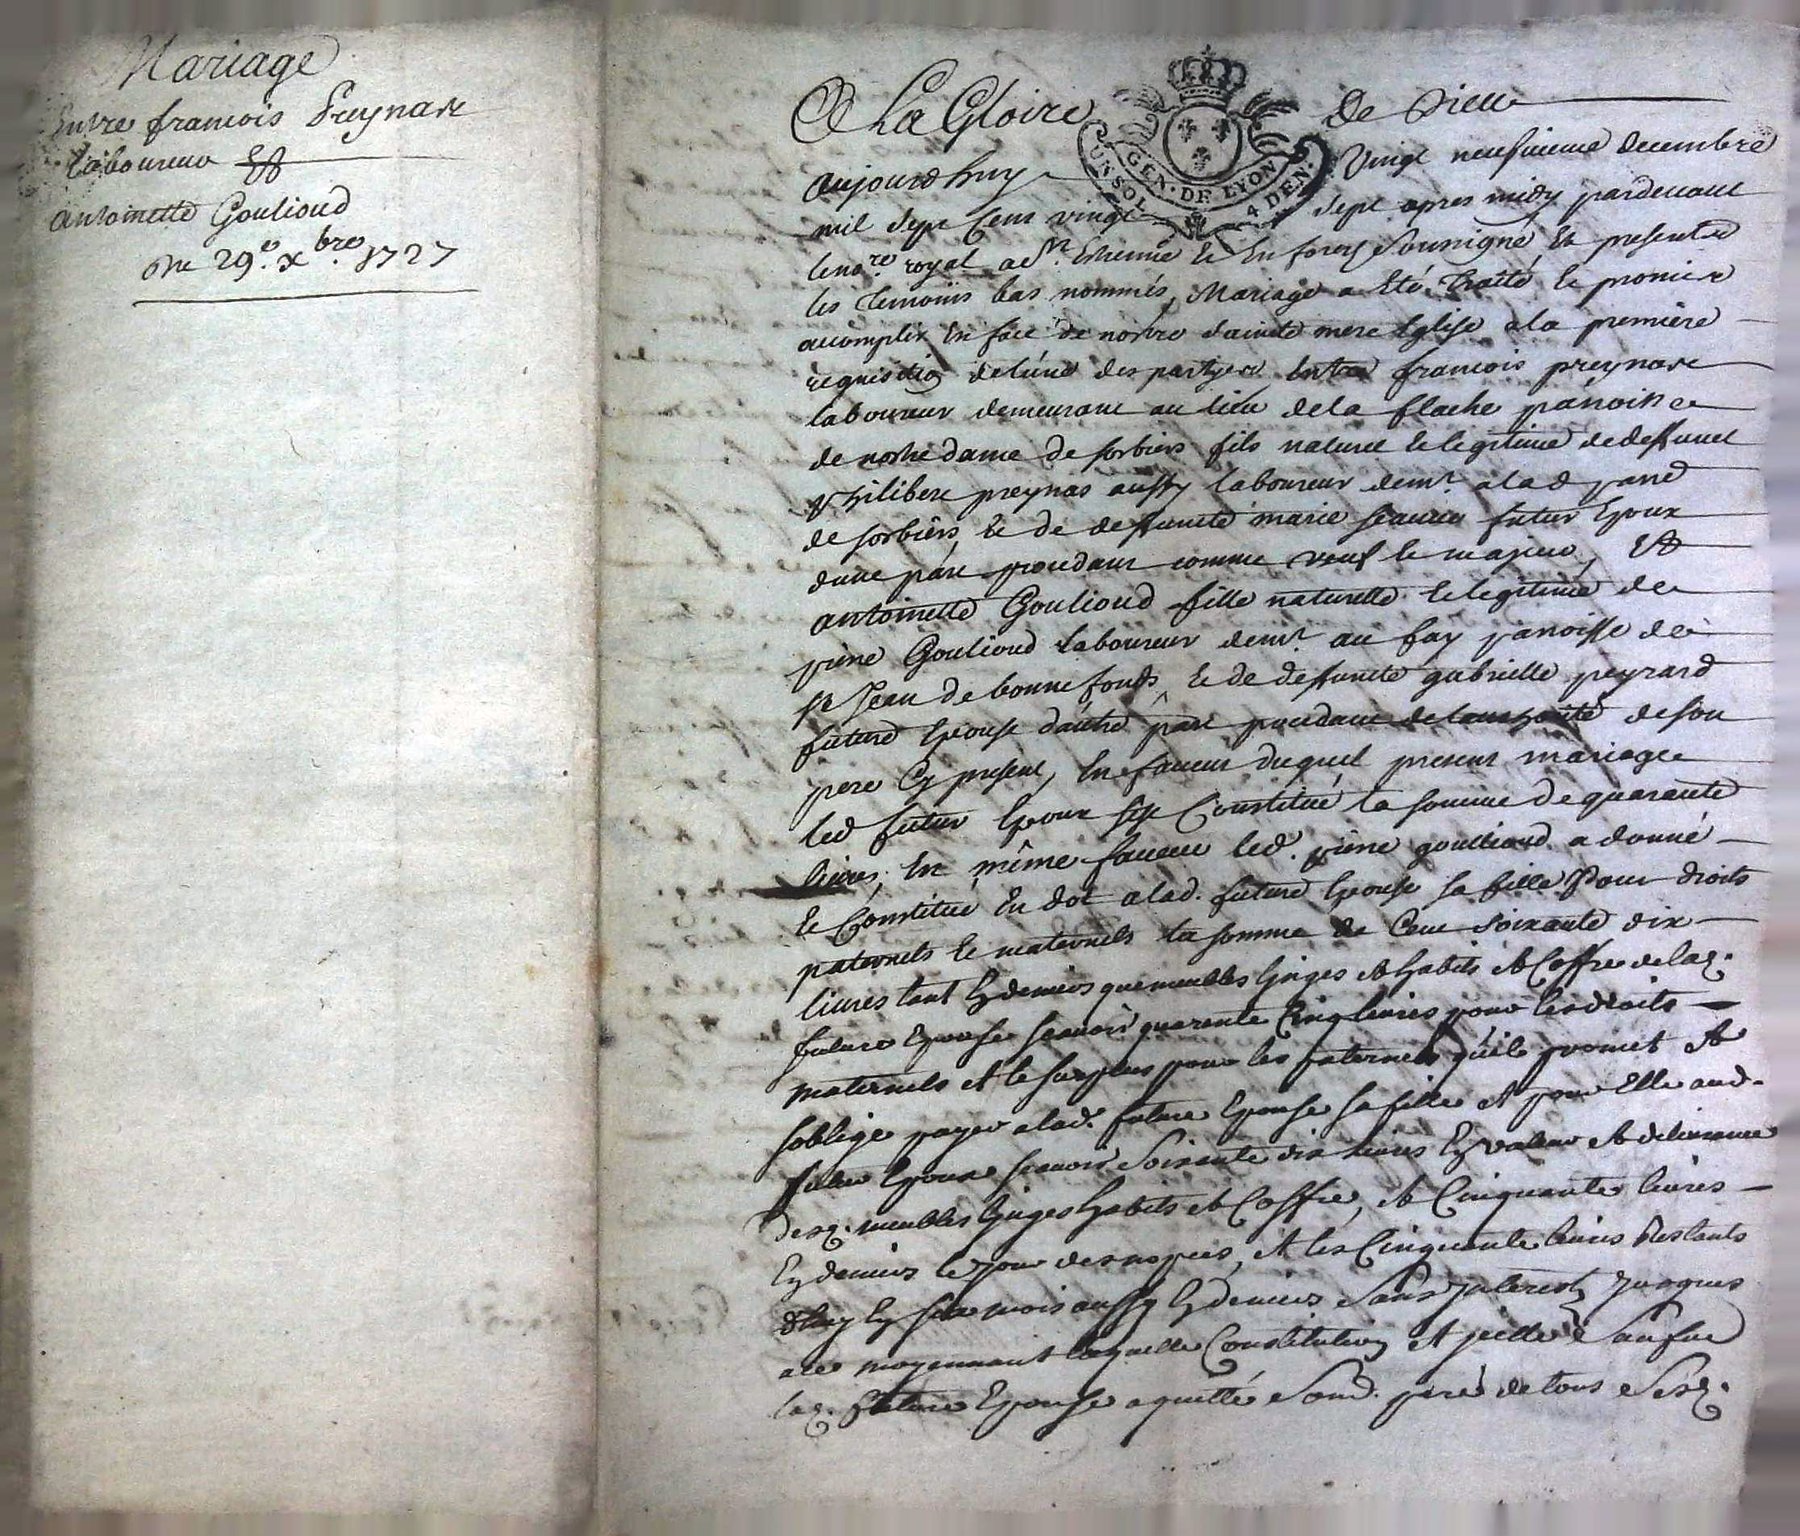 Mariage
Entre francois Preynare
laboureur Et
antoinette Goulioud
Du 29.e xbre 1727
A La Gloire de Dieu
GEN. DE LYON
UN SOL 4 DEN.
aujourdhuy vingt neufvieme decembre
mil sept Cens vingt sept apres midy pardevant
le no.re royal a S.t Ethienne Et En forez soussigné, Et presents
les temoins bas nommés, Mariage a Eté traité Et promis
accomplir En face de nostre sainte mere Eglise a la premiere
requisition de l'une des partyes Entre francois preynare
laboureur demeurant au lieu de la flache paroisse
de nostre dame de sorbiers fils naturel Et legitime de deffunct
philibert preynas aussy laboureur dem.t a lad. par
de sorbiers, Et de deffuncte marie futur Epoux
dune part procedant comme veuf Et majeur, Et
antoinette Goulioud fille naturelle Et legitime de
piere Goulioud laboureur dem.t au fay paroisse de
st Jean de bonnefonds, Et de deffuncte gabrielle peyrard
future Epouse dautre part procedant de lauthorité de son
pere Cy present, En faveur duquel present mariage
led futur Epoux sest Constitué la somme de quarante
livres; En même faveur led. piere goulioud a donné
Et Constitué En dot a lad. future Epouse sa fille Pour droits
paternels Et maternels la somme de Cent soixante dix
livres tant En deniers que meubles Linges Et habits Et Coffre de lad.
future Epouse scavoir quarente Cinq livres pour les droits
maternels Et le surplus pour les paternels quil promet Et
soblige payer a lad. future Epouse sa fille Et pour Elle aud.
futur Epoux scavoir Soixante dix livres En valeur Et delivrance
desd. meubles Linges habits Et Coffre, Et Cinquante livres
En deniers le jour des nopces, Et les Cinquante livres Restants
dhuy En six mois aussy En deniers Sans Interest Jusques
a ce moyennant laquelle Constitution Et Icelle Sauf ue
lad. future Epouse a quitté Sond. pere de tous Sesd.